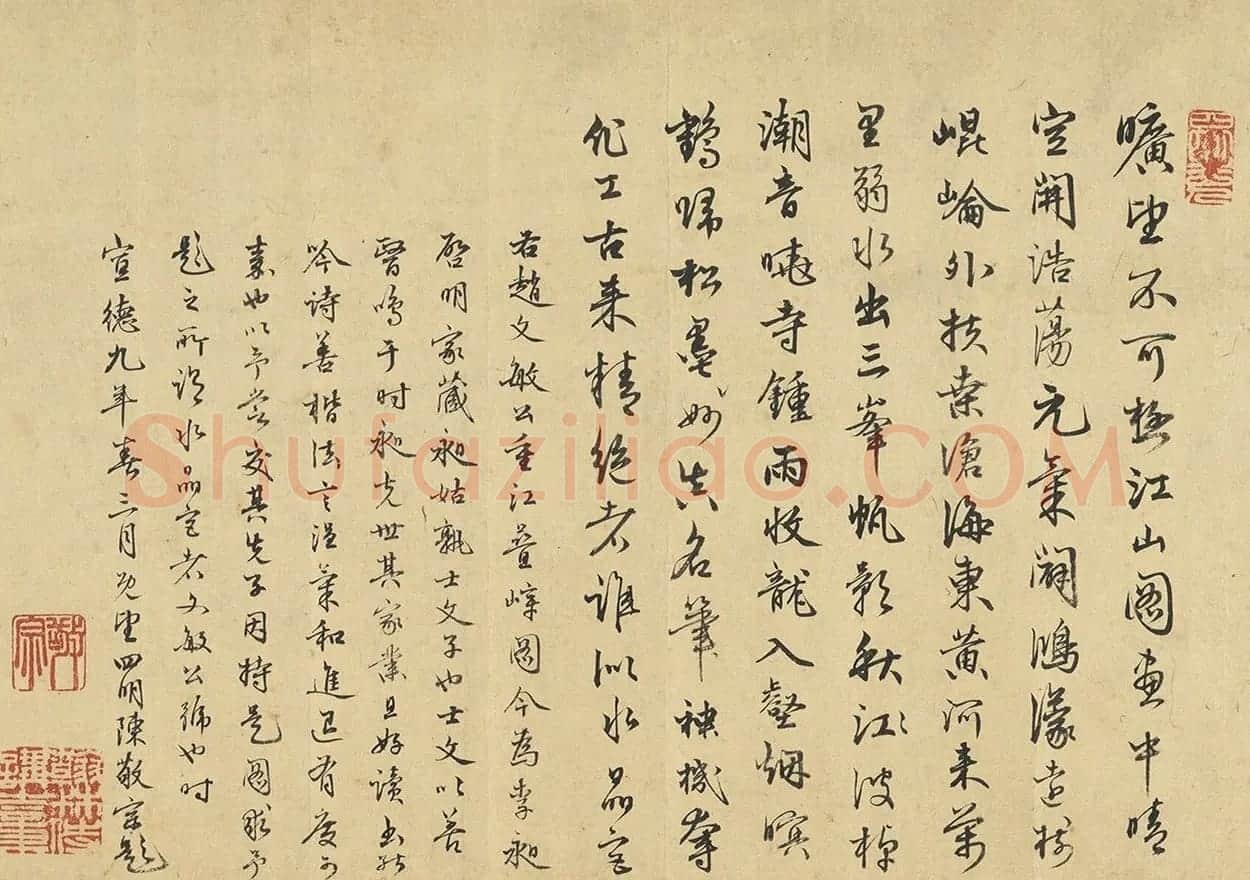 曠望不可極江山圖畫中晴
空開浩蕩元氣闢鴻濛遠樹
崐崘外扶桒滄海東黃河来萬
里弱水出三峯帆影秋江波棹
潮音曉寺鍾雨收龍入壑烟暝
鶴歸松墨妙真名筆神機奪
化工古来精絶者誰似水晶宮
右趙文敏公重江疊嶂圖今為李昶
啓明家蔵昶姑孰士文子也士文以善
醫鳴于时昶克世其家業且好讀書能
吟詩善楷法言温氣和進退有度可
嘉也以予嘗交其先子因持是圖求予
題之所謂水晶宮者文敏公號也时
宣德九年春二月既望四明陳敬宗題
敬宗
Shufaziliao.COM